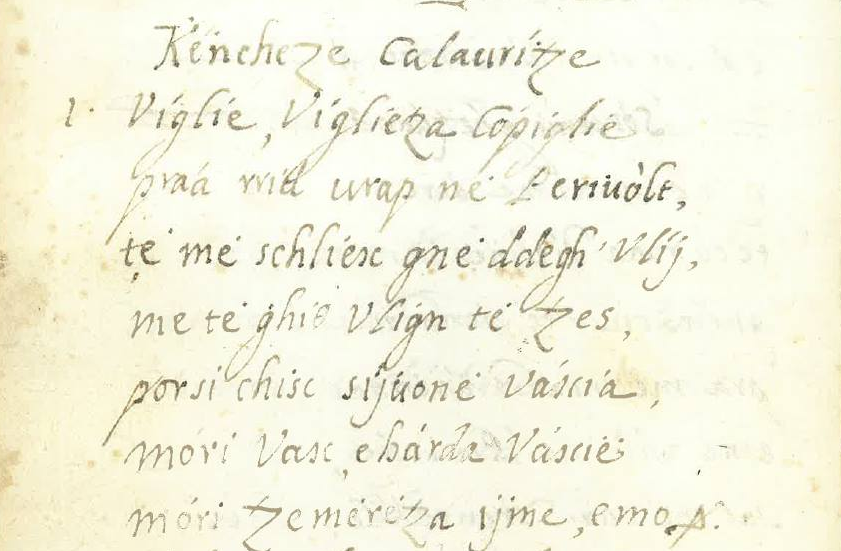 Këncheze Calauritze
1. Viglië, Viglietza Copiglië
praa rrii urap në Periuòlt,
të më schliësc gnëi ddegh' Vlij,
me të ghië Vlign të tzes,
porsi chisc sijuonë Vàscia,
móri Vasc, e bárda Váscië
móri tzemërëtza ijme, e mo